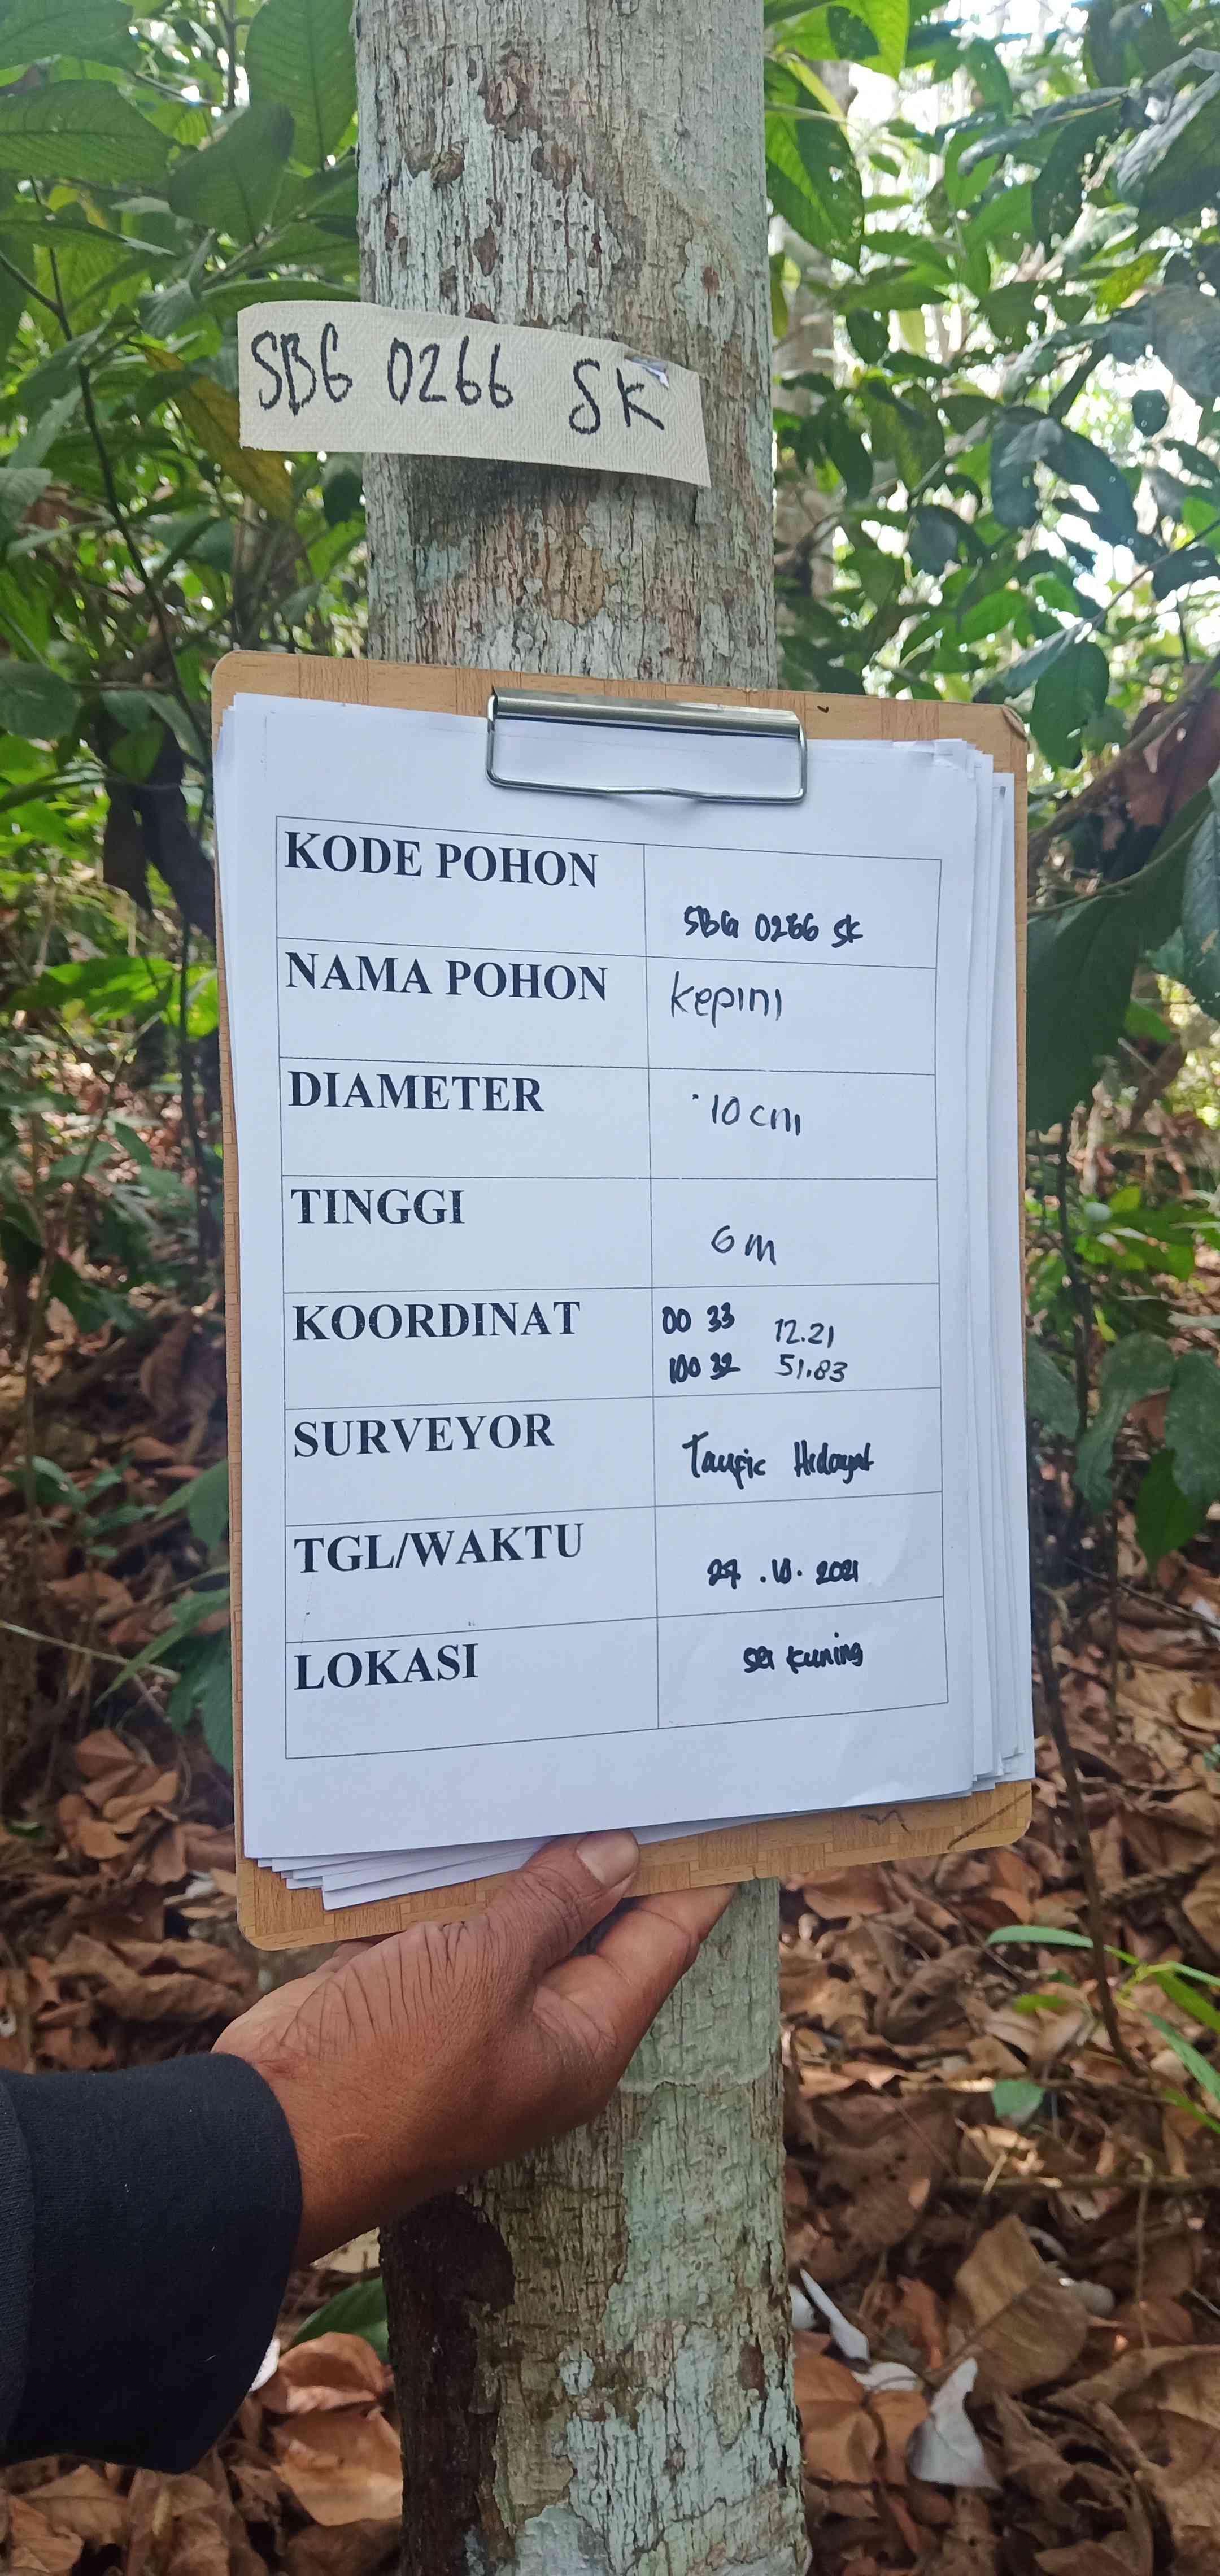 SBG 0266 SK
KODE POHON
SBG 0266 SK
NAMA POHON
Kepini
DIAMETER
10 cm
TINGGI
6 m
KOORDINAT
00 33 12.21
100 32 51.83
SURVEYOR
Taufic Hidayat
TGL/WAKTU
27.10.2021
LOKASI
Sei Kuning